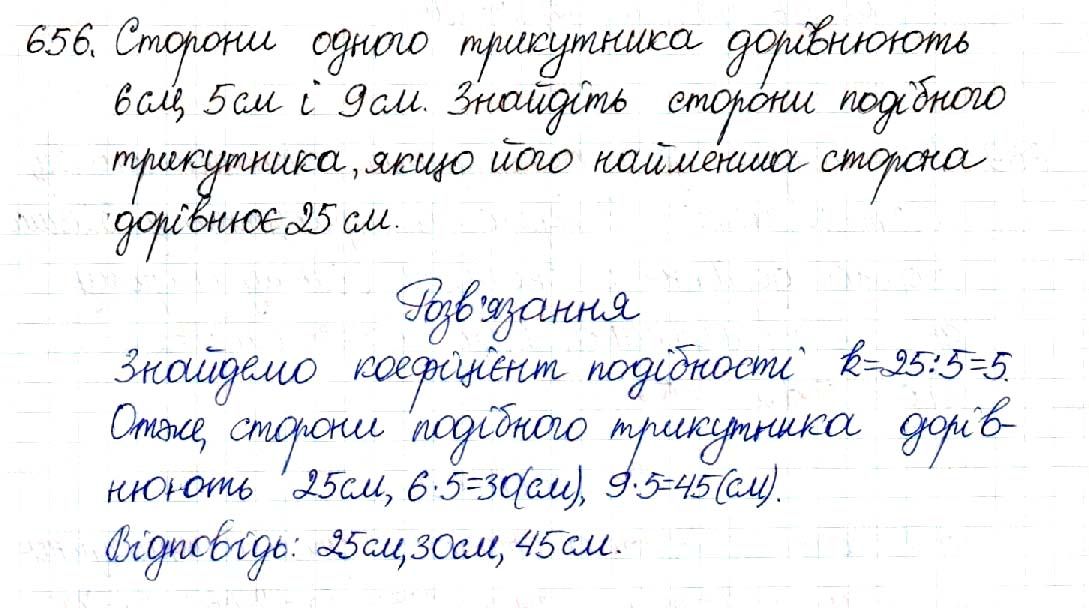 656. Сторони одного трикутника дорівнюють
6см, 5см і 9см. Знайдіть сторони подібного
трикутника, якщо його найменша сторона
дорівнює 25 см.
Розв'язання
Знайдемо коефіцієнт подібності k=25:5=5.
Отже, сторони подібного трикутника дорів-
нюють 25см, 6·5=30(см), 9·5=45(см).
Відповідь: 25см, 30см, 45см.